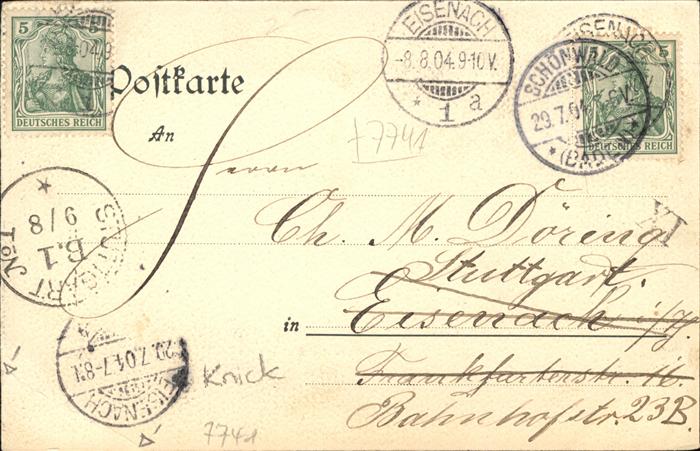 5 5
DEUTSCHES REICH
EISENACH
-8.8.04.9-10V.
* 1 a
EISENACH
5
DEUTSCHES REICH
SCHONWALD
29.7.04
* (BADEN) *
Postkarte
An
+7741
Herrn
STUTTGART
9/8
B.1
Ch. M. Döring
Stuttgart.
in Eisenach i/Th.
Frankfurterstr. 16.
Bahnhofstr. 23B.
EISENACH
29.7.04.7-8N
Knick
7741